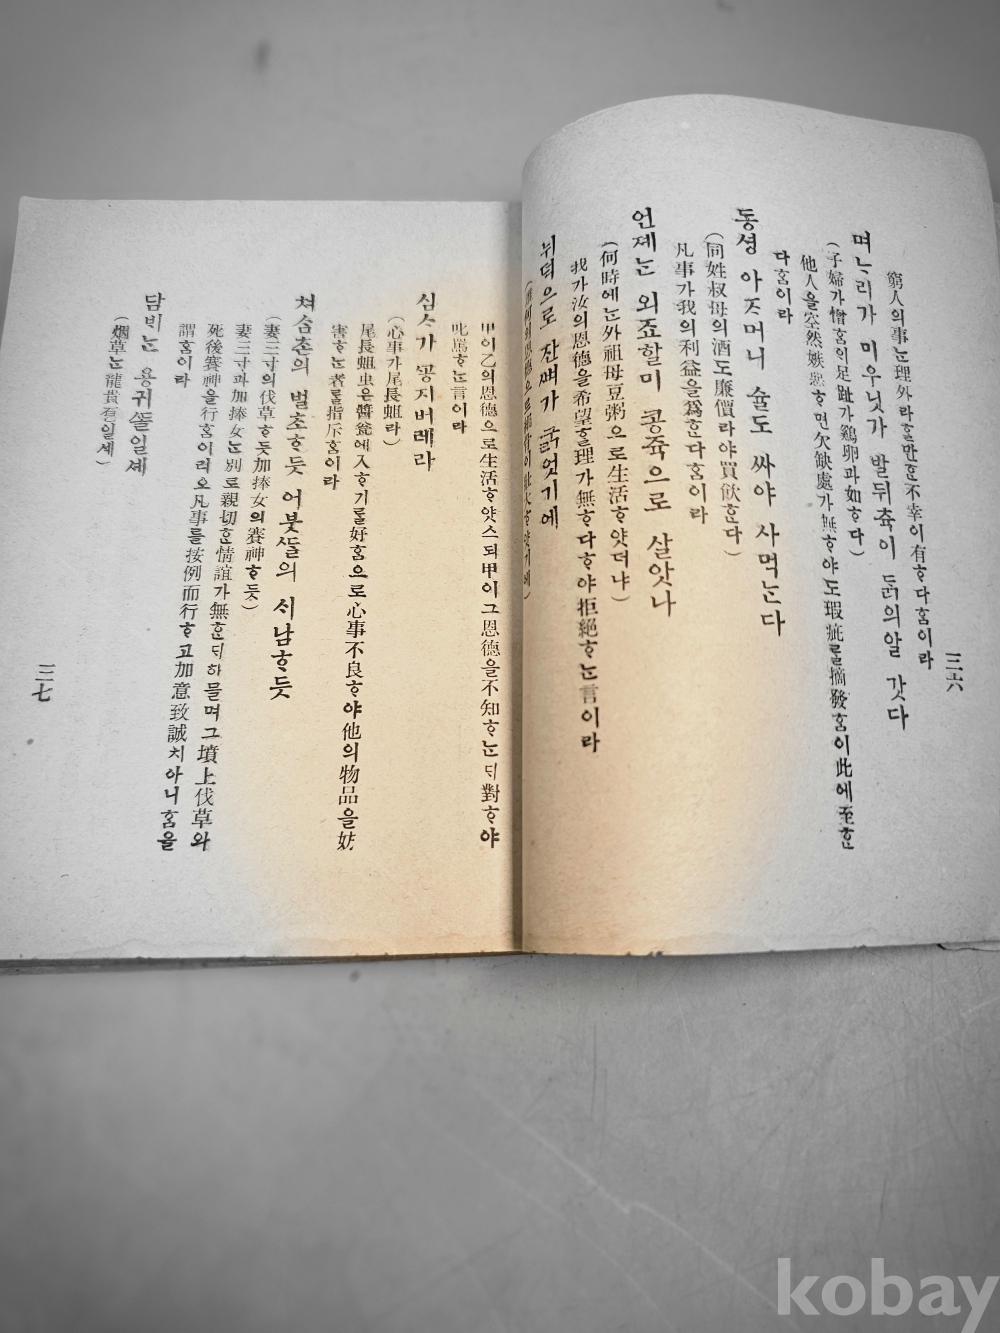 窮人의事ᄂᆞᆫ理外라ᄒᆞᆯ만ᄒᆞᆫ不幸이有ᄒᆞ다ᄒᆞᆷ이라
三六
며ᄂᆞ리가 미우닛가 발뒤츅이 ᄃᆞᆰ의알 갓다
(子婦가憎ᄒᆞᆷ의足趾가鷄卵과如ᄒᆞ다)
他人을空然嫉ᄒᆞ면欠缺處가無ᄒᆞ야도瑕疵ᄅᆞᆯ摘發ᄒᆞᆷ이此에至ᄒᆞᆫ
다ᄒᆞᆷ이라
동셩 아ᄌᆞ머니 슐도 싸야 사먹ᄂᆞᆫ다
(同姓叔母의酒도廉價라야買飮ᄒᆞᆫ다)
凡事가我의利益을爲ᄒᆞᆫ다ᄒᆞᆷ이라
언졔ᄂᆞᆫ 외죠할미 콩쥭으로 살앗나
(何時에ᄂᆞᆫ外祖母豆粥으로生活ᄒᆞ얏더냐)
我가汝의恩德을希望ᄒᆞᆯ理가無ᄒᆞ다ᄒᆞ야拒絶ᄒᆞᄂᆞᆫ言이라
뉘덕으로 잔ᄲᅧ가 굵엇기에
甲이乙의恩德으로生活ᄒᆞ얏스되甲이그恩德을不知ᄒᆞᄂᆞᆫᄃᆡ對ᄒᆞ야
叱罵ᄒᆞᄂᆞᆫ言이라
심ᄉᆞ가 ᄭᅩᆼ지버레라
(心事가尾長蛆라)
尾長蛆虫은醬瓮에入ᄒᆞ기ᄅᆞᆯ好ᄒᆞᆷ으로心事不良ᄒᆞ야他의物品을妨
害ᄒᆞᄂᆞᆫ者ᄅᆞᆯ指斥ᄒᆞᆷ이라
쳐삼촌의 벌초ᄒᆞ듯 어붓ᄯᆞᆯ의 시남ᄒᆞ듯
(妻三寸의伐草ᄒᆞ듯加捧女의賽神ᄒᆞ듯)
妻三寸과加捧女ᄂᆞᆫ別로親切ᄒᆞᆫ情誼가無ᄒᆞᆫᄃᆡ하믈며그墳上伐草와
死後賽神을行ᄒᆞᆷ이리오凡事를按例而行ᄒᆞ고加意致誠치아니ᄒᆞᆷ을
謂ᄒᆞᆷ이라
담ᄇᆡᄂᆞᆫ 용귀ᄯᅩᆯ일셰
(烟草ᄂᆞᆫ龍貴有일셰)
三七
kobay